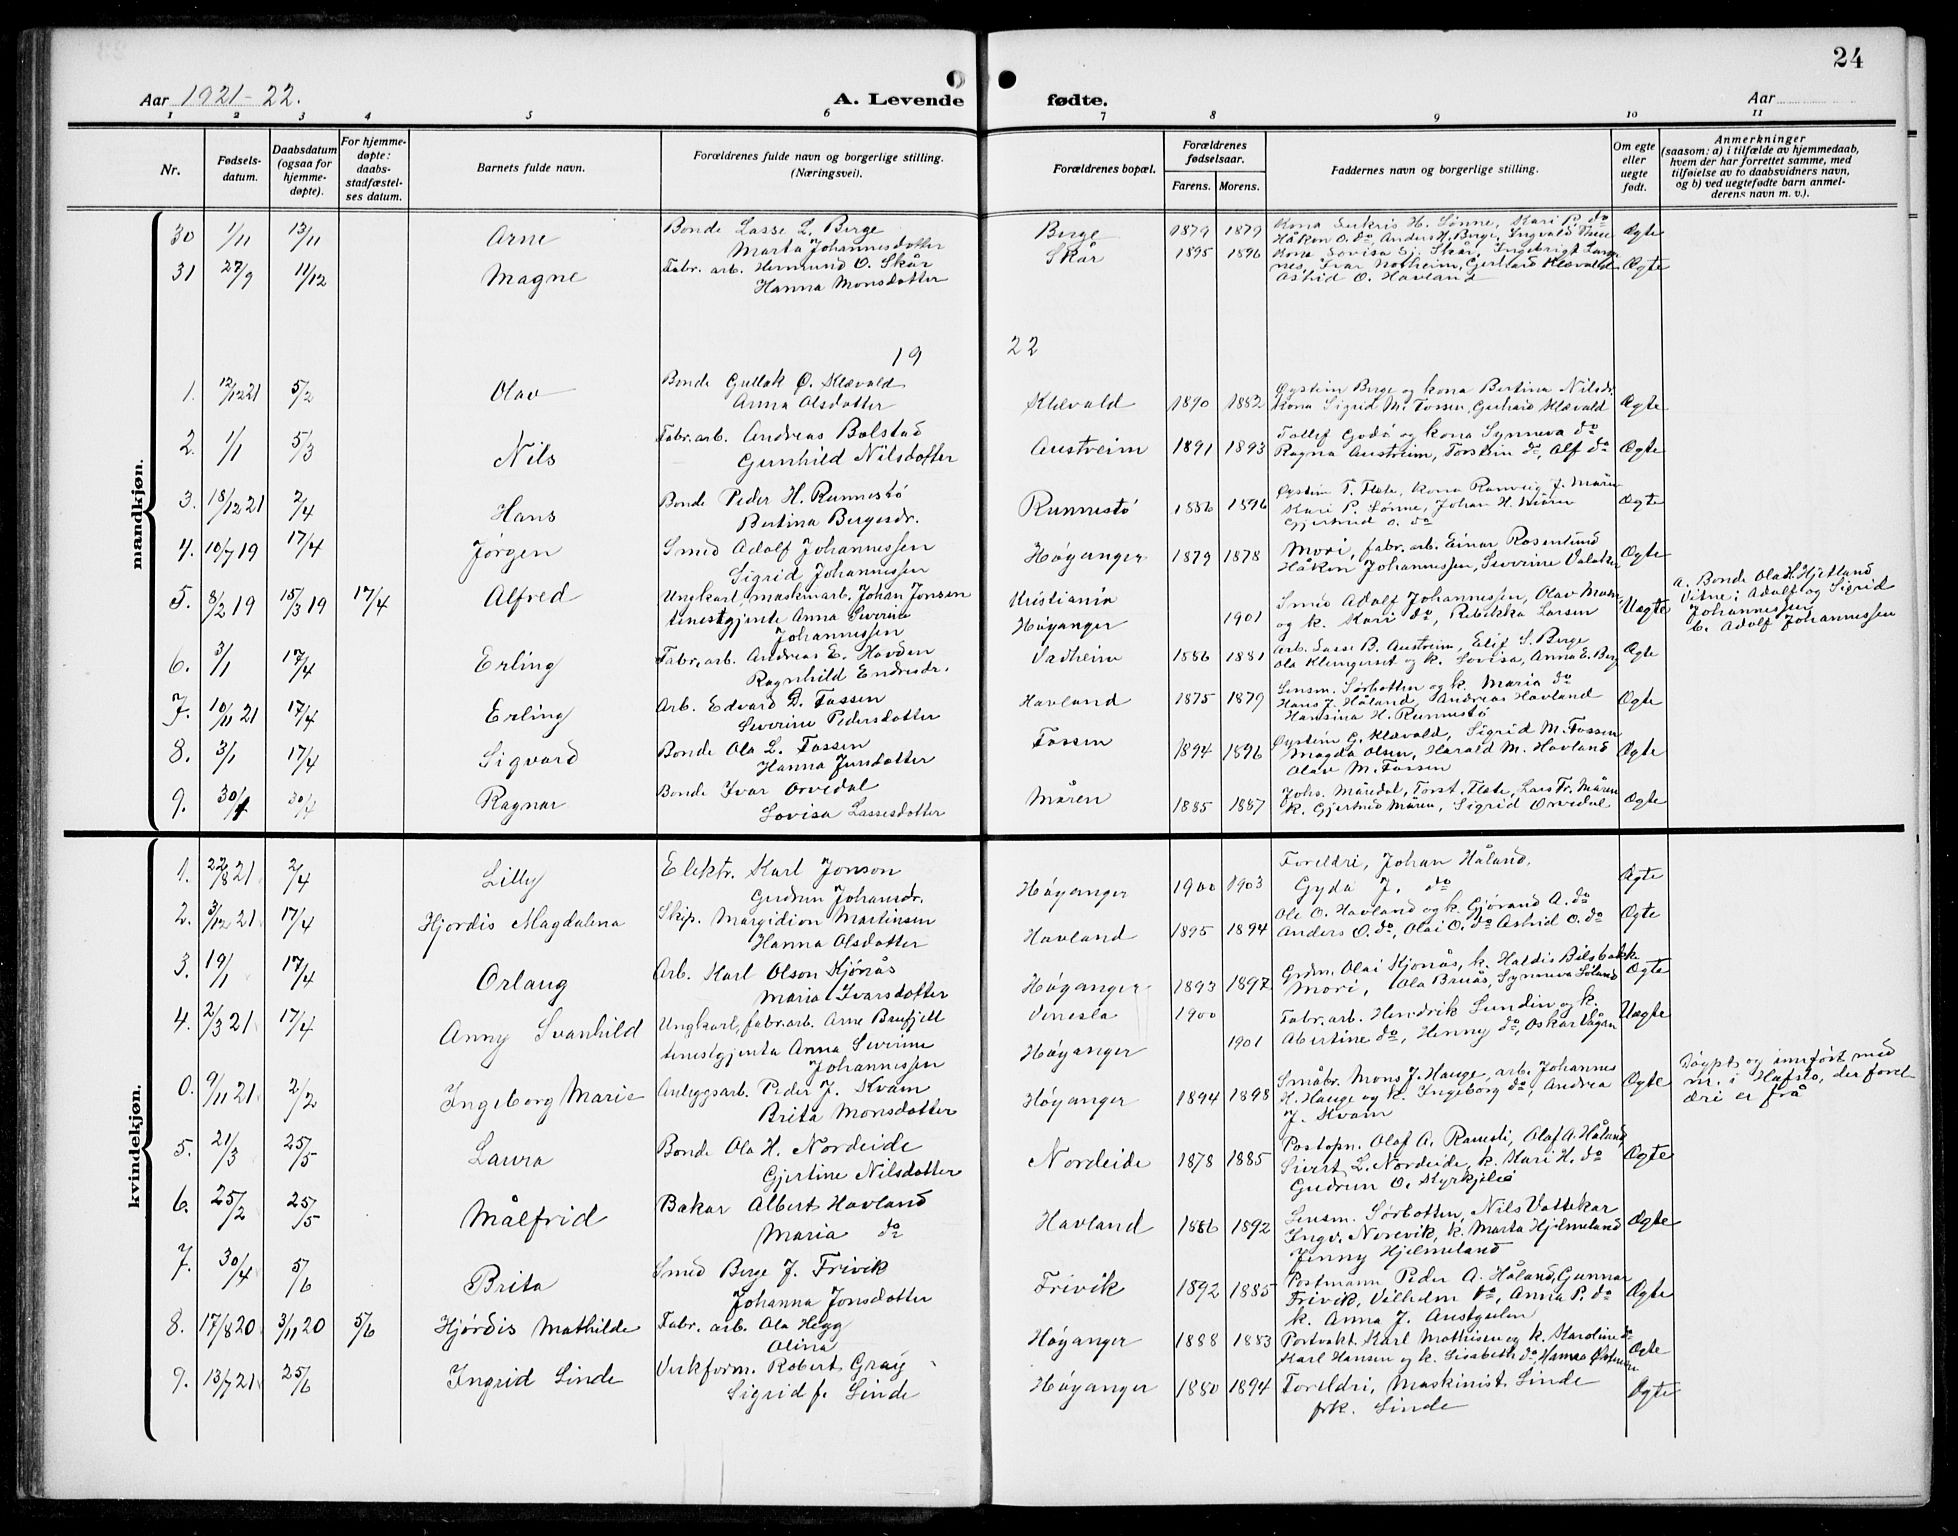 24
Aar 1921-22. A. Levende fødte. Aar
1 2 3 4 5 6 7 8 9 10 11
Nr. Fødsels-datum. Daabsdatum (ogsaa for hjemme-døpte). For hjemme-døpte: daabs-stadfæstel-ses datum. Barnets fulde navn. Forældrenes fulde navn og borgerlige stilling. (Næringsvei). Forældrenes bopæl. Forældrenes fødselsaar. Farens. Morens. Faddernes navn og borgerlige stilling. Om egte eller uegte født. Anmerkninger (saasom: a) i tilfælde av hjemmedaab, hvem der har forrettet samme, med tilføielse av to daabsvidners navn, og b) ved uegtefødte barn anmel-derens navn m. v.).
mandkjøn.
30 1/11 13/11 Arne Bonde Lasse L. Berge Marta Johannesdotter Berge 1879 1879 Kona H. Sønne, Kari P. do Håkon O. do, Anders H. Berge, Ingvald Ægte
31 27/9 11/12 Magne Fabr. arb. Hermund O. Skår Hanna Monsdotter Skår 1895 1896 Kona Lovisa Skår, Ingebrigt Ivar Gerhard Klævold Astrid O. Havland Ægte
19 22
1. 12/12 21 5/2 Olav Bonde Gullak Ø. Klævold Anna Olsdotter Klævold 1890 1882 Øystein Berge og kona Bertina Nilsdr. Kona Sigrid M. Fossen, Gerhard Klævold Ægte
2. 1/1 5/3 Nils Fabr. arb. Andreas Bolstad Gunhild Nilsdotter Austreim 1891 1893 Tollef Godø og kona Synneva do Ragna Austreim, Torstein do, Alf do Ægte
3. 18/12 21 2/4 Hans Bonde Peder H. Runnestø Bertina Bergesdr. Runnestø 1886 1896 Øystein T. Flete, kona Ranveig J. Måren Kari P. Sønne, Johan H. Måren Gjertrud O. do Ægte
4. 10/7 19 17/4 Jørgen Smed Adolf Johannessen Sigrid Johannessen Høyanger 1879 1878 Mori, fabr. arb. Einar Rosenlund Håkon Johannessen, Severine Valaker Ægte
5. 8/2 19 15/3 19 17/4 Alfred Ungkarl, maskinarb. Johan Jonsen tenestgjente Anna Severine Johannessen Kristiania Høyanger 1901 Smed Adolf Johannessen, Olav og k. Kari do, Rebekka Larsen Uægte a. Bonde Ola H. Hjetland Vitne: Adolf og Sigrid Johannessen b. Adolf Johannessen
6. 3/1 17/4 Erling Fabr. arb. Andreas E. Hovden Ragnhild Endresdr. Vadheim 1886 1881 Arb. Lasse B. Austreim, Elif S. Berge Ola Kleingerset og k. Lovisa, Anna E. Berg Ægte
7. 10/11 21 17/4 Erling Arb. Edvard D. Fossen Severine Pedersdotter Havland 1875 1879 Lensm. Sørbotten og k. Maria do Hans J. Håland, Andreas Havland Hansina H. Runnestø Ægte
8. 3/1 17/4 Sigvard Bonde Ola L. Fossen Hanna Jensdotter Fossen 1894 1896 Øystein G. Klævold, Sigrid M. Fossen Magda Olsen, Harald M. Havland Olav M. Fossen Ægte
9. 30/1 30/4 Ragnar Bonde Ivar Orvedal Lovisa Lassesdotter Måren 1885 1887 Johs. Måredal, Torst. Flete, Lars Fr. Måren k. Gjertrud Måren, Sigrid Orvedal Ægte
kvindekjøn.
1. 22/8 21 2/4 Lilly Elektr. Karl Jonson Gudrun Johansdr. Høyanger 1900 1903 Foreldri, Johan Håland, Gyda J. do Ægte
2. 3/12 21 17/4 Hjordis Magdalena Skip. Margidion Martinsen Hanna Olsdotter Havland 1895 1894 Ole O. Havland og k. Gjørand A. do Anders O. do, Olai O. do Astrid O. do Ægte
3. 19/1 17/4 Orlaug Arb. Karl Olson Kjønås Maria Ivarsdotter Høyanger 1893 1897 Grdm. Olai Kjønås, k. Haldis Bilsbakk Mori, Ola Bruås, Synneva Søland Ægte
4. 2/3 21 17/4 Anny Svanhild Ungkarl, fabr. arb. Arne Brufjell tenestgjenta Anna Severine Johannessen Venesla Høyanger 1900 1901 Fabr. arb. Hendrik Lundin og k. Abertine do, Henny do, Oskar Vågan Uægte
0. 9/11 21 2/2 Ingeborg Marie Anleggsarb. Peder J. Kvam Brita Monsdotter Høyanger 1894 1898 Småbr. Mons J. Hauge, arb. Johannes H. Hauge og k. Ingeborg do, Andrea J. Kvam Ægte Døypt og innført med nr. i Hafslo, der foreldri er frå
5. 21/3 25/5 Laura Bonde Ola H. Nordeide Gjertine Nilsdotter Nordeide 1878 1885 Postopn. Olaf A. Ramsli, Olaf A. Håland Sivert L. Nordeide, k. Kari H. do Gudrun O. Kyrkjeleie Ægte
6. 25/2 25/5 Målfrid Bakar Albert Havland Maria do Havland 1886 1892 Lensm. Sørbotten, Nils Vattekar Ingv. Norevik, k. Marta Hjelmeland Jenny Hjelmeland Ægte
7. 30/4 5/6 Brita Smed Berge J. Frivik Johanna Jonsdotter Frivik 1892 1885 Postmann Peder A. Håland, Gunnar Frivik, Vilhelm do, Anna P. do k. Anna J. Austgulen Ægte
8. 17/8 20 3/11 20 5/6 Hjørdis Mathilde Fabr. arb. Ola Hegg Olina Høyanger 1888 1883 Portvakt Karl Mathisen og k. Karoline do Karl Hansen og k. Lisabeth do, Hanna Østman Ægte
9. 13/7 21 25/6 Ingrid Linde Verkform. Robert Gray Sigrid f. Linde Høyanger 1880 1894 Foreldri, Maskinist Linde frk. Linde Ægte